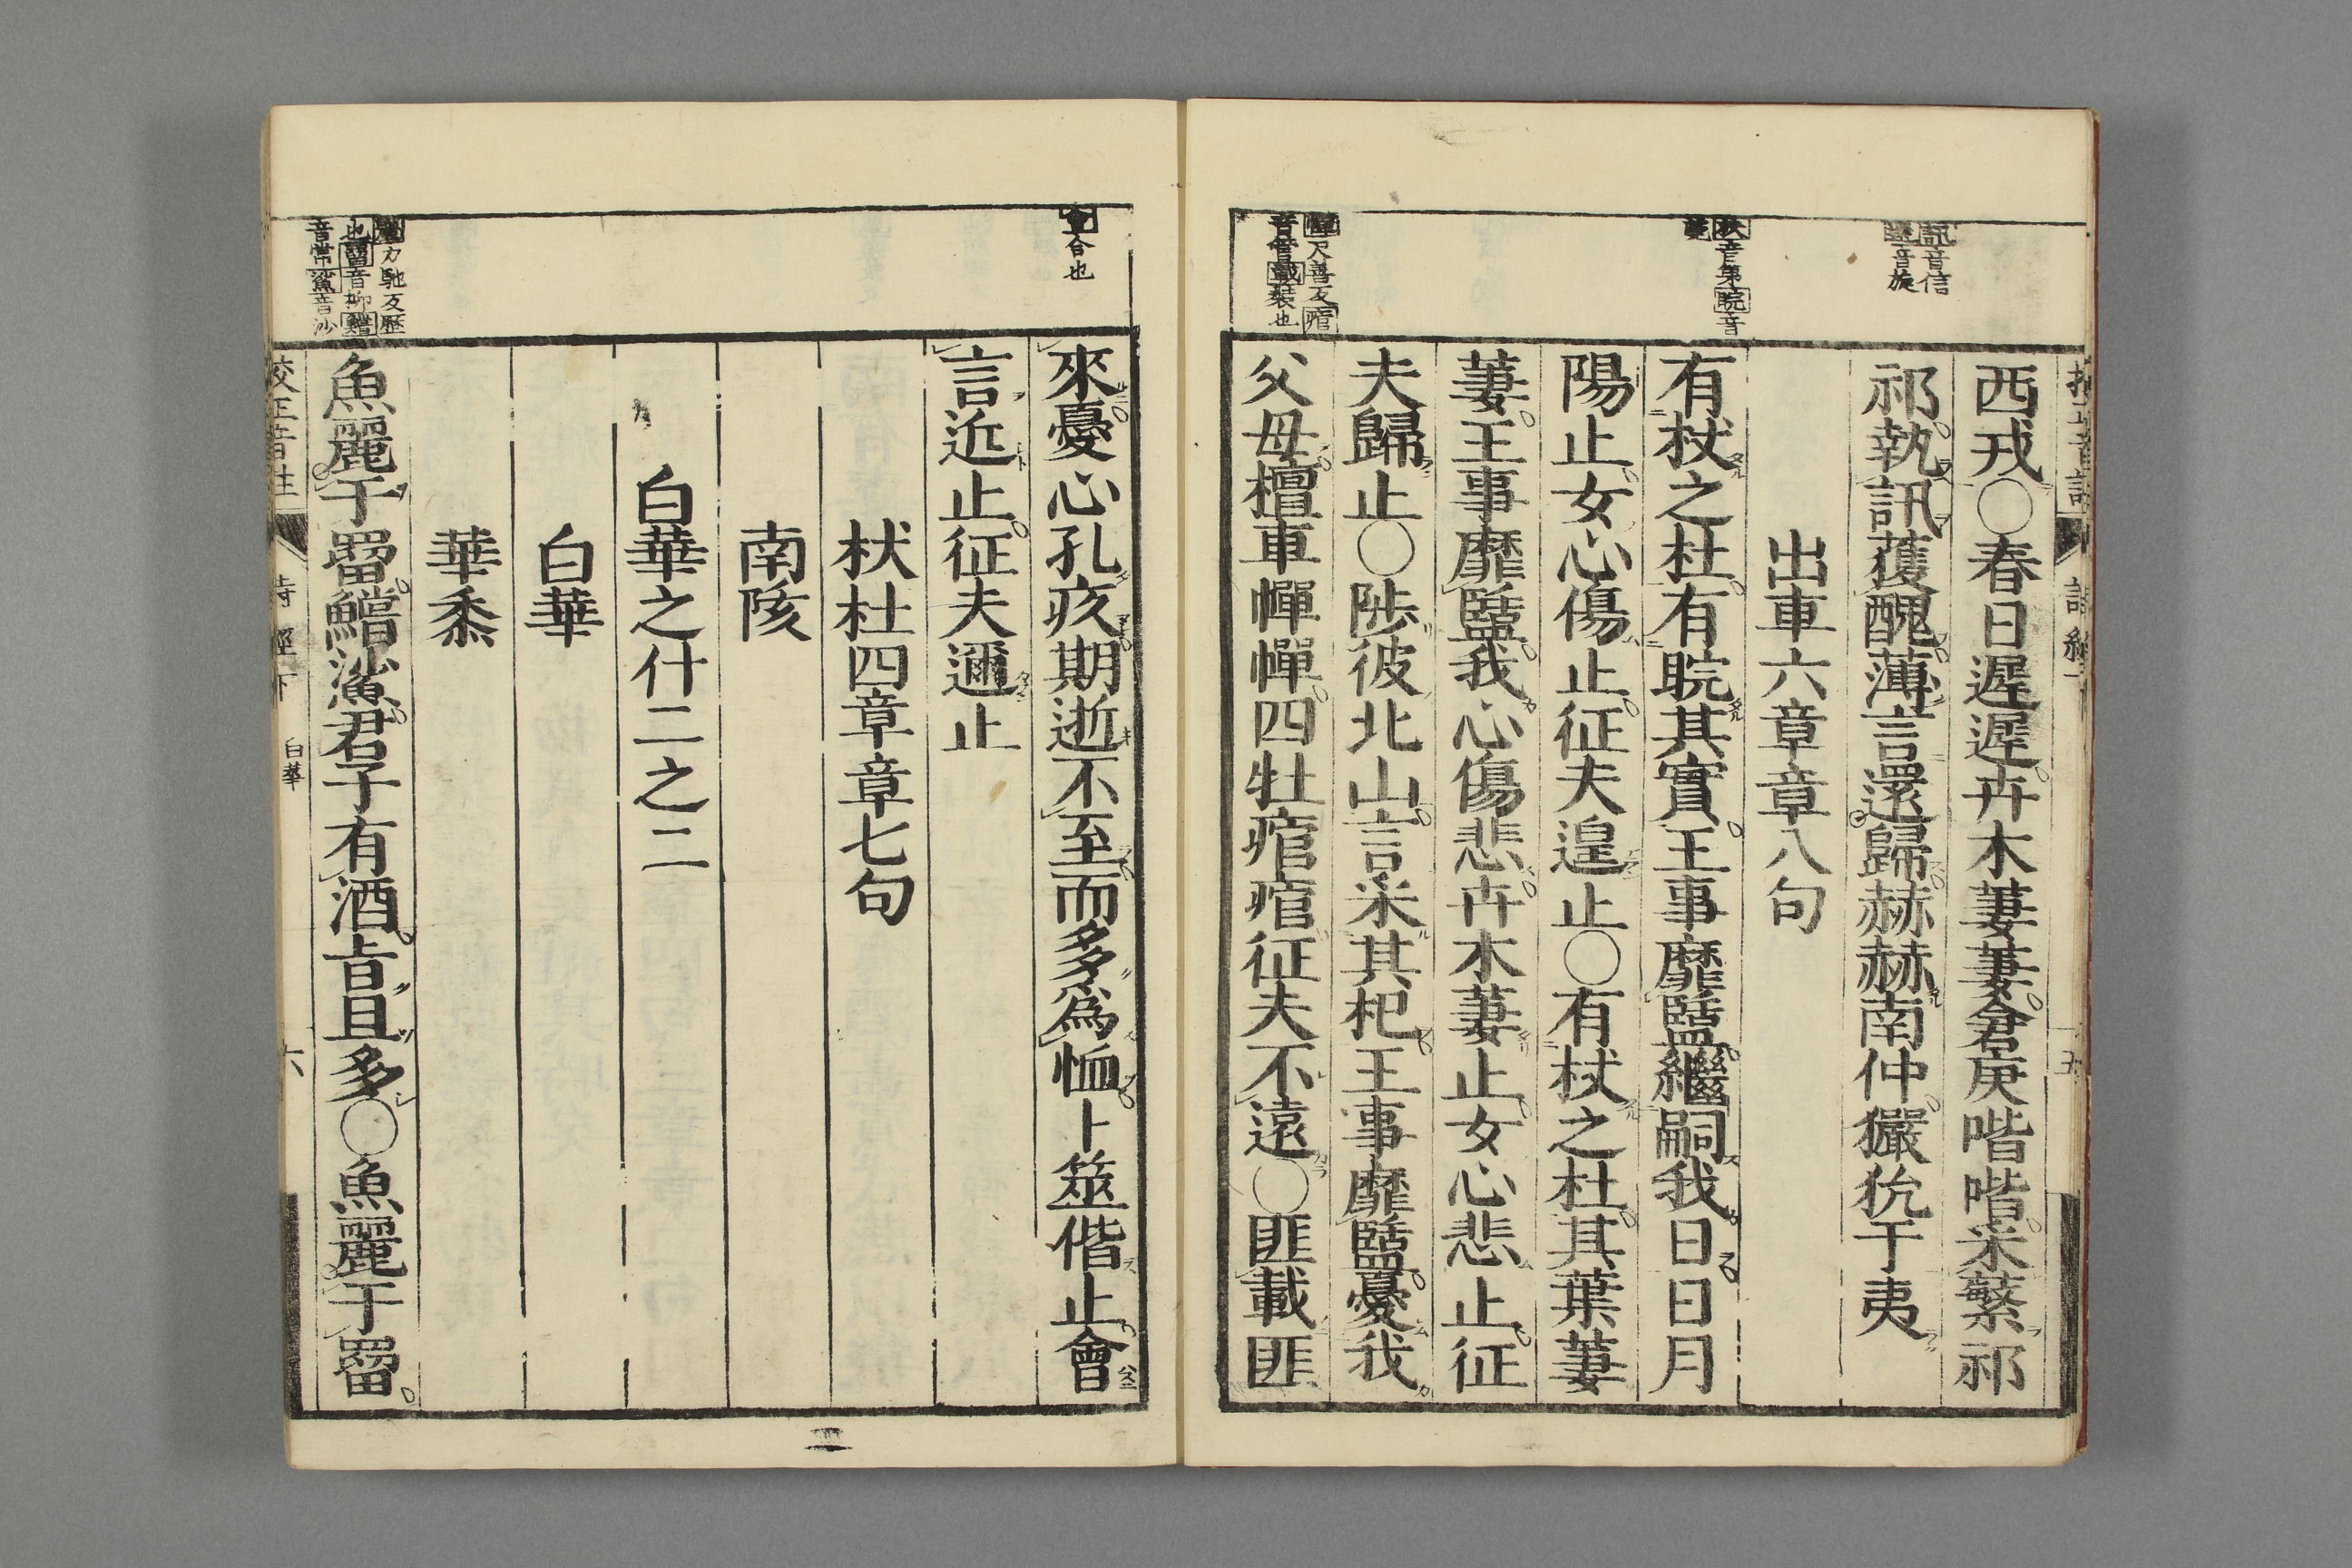 訊音信
音旋
杕音第睆音
幝尺善反痯
音管載裝也
西戎○春日遲遲卉木萋萋倉庚喈喈采蘩祁
祁執訊獲醜薄言還歸赫赫南仲玁狁于夷
出車六章章八句
有杕之杜有睆其實王事靡盬繼嗣我日日月
陽止女心傷止征夫遑止○有杕之杜其葉萋
萋王事靡盬我心傷悲卉木萋止女心悲止征
夫歸止○陟彼北山言采其杞王事靡盬憂我
父母檀車幝幝四牡痯痯征夫不遠○匪載匪
會合也
力馳反歷
也罶音柳鱨
音常鯊音沙
來憂心孔疚期逝不至而多爲恤卜筮偕止會
言近止征夫邇止
杕杜四章章七句
南陔
白華之什二之二
白華
華黍
魚麗于罶鱨鯊君子有酒旨且多○魚麗于罶
校正音註 詩經下 白華 六